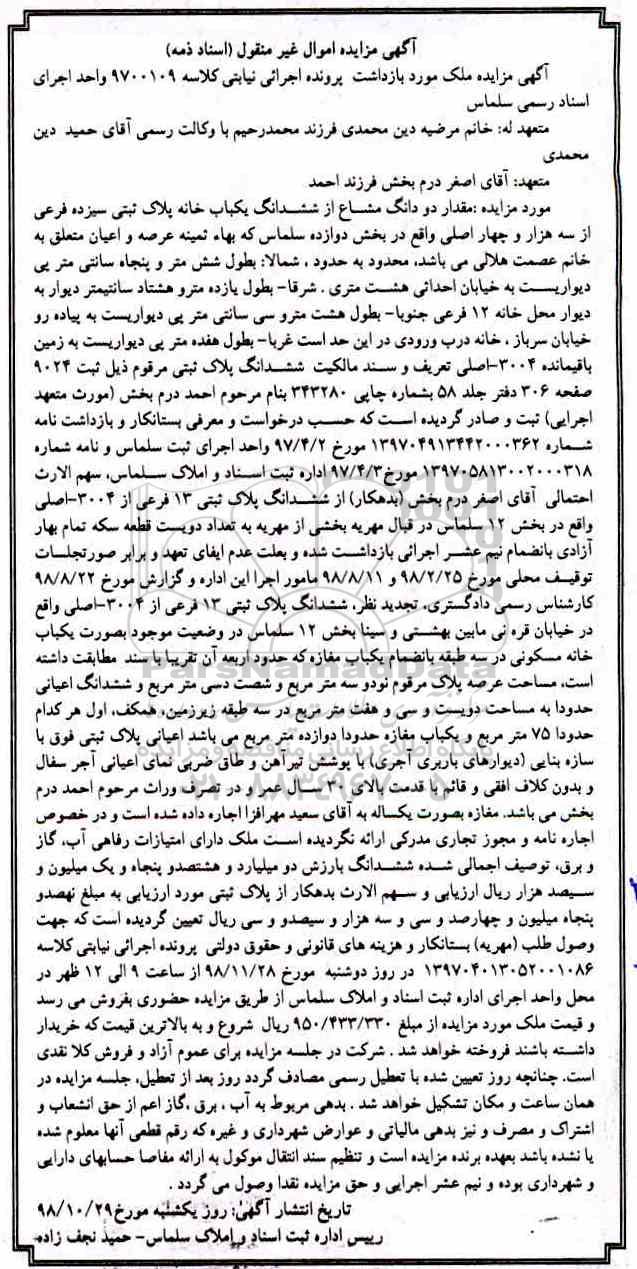 آگهی مزایده اموال غیر منقول (اسناد ذمه)
آگهی مزایده ملک مورد بازداشت پرونده اجرائی نیابتی کلاسه ۹۷۰۰۱۰۹ واحد اجرای
اسناد رسمی سلماس
متعهد له: خانم مرضیه دین محمدی فرزند محمدرحیم با وکالت رسمی آقای حمید دین
محمدی
متعهد: آقای اصغر درم بخش فرزند احمد
مورد مزایده :مقدار دو دانگ مشاع از ششدانگ یکباب خانه پلاک ثبتی سیزده فرعی
از سه هزار و چهار اصلی واقع در بخش دوازده سلماس که بهاء ثمینه عرصه و اعیان متعلق به
خانم عصمت هلالی می باشد، محدود به حدود ، شمالا: بطول شش متر و پنجاه سانتی متر پی
دیواریست به خیابان احداثی هشت متری . شرقا- بطول یازده مترو هشتاد سانتیمتر دیوار به
دیوار محل خانه ۱۲ فرعی جنوبا- بطول هشت مترو سی سانتی متر پی دیواریست به پیاده رو
خیابان سرباز ، خانه درب ورودی در این حد است غربا- بطول هفده متر پی دیواریست به زمین
باقیمانده ۳۰۰۴-اصلی تعریف و سند مالکیت ششدانگ پلاک ثبتی مرقوم ذیل ثبت ۹۰۲۴
صفحه ۳۰۶ دفتر جلد ۵۸ بشماره چاپی ۳۴۳۲۸۰ بنام مرحوم احمد درم بخش (مورث متعهد
اجرایی) ثبت و صادر گردیده است که حسب درخواست و معرفی بستانکار و بازداشت نامه
شماره ۱۳۹۷۰۴۹۱۳۴۴۲۰۰۰۳۶۲ مورخ ۹۷/۴/۲ واحد اجرای ثبت سلماس و نامه شماره
۱۳۹۷۰۵۸۱۳۰۰۲۰۰۰۳۱۸ مورخ۹۷/۴/۳ اداره ثبت اسناد و املاک سلماس، سهم الارث
احتمالی آقای اصغر درم بخش (بدهکار) از ششدانگ پلاک ثبتی ۱۳ فرعی از ۳۰۰۴-اصلی
واقع در بخش ۱۲ سلماس در قبال مهریه بخشی از مهریه به تعداد دویست قطعه سکه تمام بهار
آزادی بانضمام نیم عشر اجرائی بازداشت شده و بعلت عدم ایفای تعهد و برابر صورتجلسات
توقیف محلی مورخ ۹۸/۲/۲۵ و ۹۸/۸/۱۱ مامور اجرا این اداره و گزارش مورخ ۹۸/۸/۲۲
کارشناس رسمی دادگستری، تجدید نظر، ششدانگ پلاک ثبتی ۱۳ فرعی از ۳۰۰۴-اصلی واقع
در خیابان قره نی مابین بهشتی و سینا بخش ۱۲ سلماس در وضعیت موجود بصورت یکباب
خانه مسکونی در سه طبقه بانضمام یکباب مغازه که حدود اربعه آن تقریبا با سند مطابقت داشته
است، مساحت عرصه پلاک مرقوم نودو سه متر مربع و شصت دسی متر مربع و ششدانگ اعیانی
حدودا به مساحت دویست و سی و هفت متر مربع در سه طبقه زیرزمین، همکف، اول هر کدام
حدودا ۷۵ متر مربع و یکباب مغازه حدودا دوازده متر مربع می باشد اعیانی پلاک ثبتی فوق با
سازه بنایی (دیوارهای باربری آجری) با پوشش تیرآهن و طاق ضربی نمای اعیانی آجر سفال
و بدون کلاف افقی و قائم با قدمت بالای ۳۰ سال عمر و در تصرف وراث مرحوم احمد درم
بخش می باشد. مغازه بصورت یکساله به آقای سعید مهرافزا اجاره داده شده است و در خصوص
اجاره نامه و مجوز تجاری مدرکی ارائه نگردیده است ملک دارای امتیازات رفاهی آب، گاز
و برق، توصیف اجمالی شده ششدانگ بارزش دو میلیارد و هشتصدو پنجاه و یک میلیون و
سیصد هزار ریال ارزیابی و سهم الارث بدهکار از پلاک ثبتی مورد ارزیابی به مبلغ نهصدو
پنجاه میلیون و چهارصد و سی و سه هزار و سیصدو و سی ریال تعیین گردیده است که جهت
وصول طلب (مهریه) بستانکار و هزینه های قانونی و حقوق دولتی پرونده اجرائی نیابتی کلاسه
۱۳۹۷۰۴۰۱۳۰۵۲۰۰۱۰۸۶ در روز دوشنبه مورخ ۹۸/۱۱/۲۸ از ساعت ۹ الی ۱۲ ظهر در
محل واحد اجرای اداره ثبت اسناد و املاک سلماس از طریق مزایده حضوری بفروش می رسد
و قیمت ملک مورد مزایده از مبلغ ۹۵۰/۴۳۳/۳۳۰ ریال شروع و به بالاترین قیمت که خریدار
داشته باشند فروخته خواهد شد . شرکت در جلسه مزایده برای عموم آزاد و فروش کلا نقدی
است. چنانچه روز تعیین شده با تعطیل رسمی مصادف گردد روز بعد از تعطیل، جلسه مزایده در
همان ساعت و مکان تشکیل خواهد شد . بدهی مربوط به آب ، برق ،گاز اعم از حق انشعاب و
اشتراک و مصرف و نیز بدهی مالیاتی و عوارض شهرداری و غیره که رقم قطعی آنها معلوم شده
یا نشده باشد بعهده برنده مزایده است و تنظیم سند انتقال موکول به ارائه مفاصا حسابهای دارایی
و شهرداری بوده و نیم عشر اجرایی و حق مزایده نقدا وصول می گردد .
تاریخ انتشار آگهی: روز یکشنبه مورخ۹۸/۱۰/۲۹
رییس اداره ثبت اسناد و املاک سلماس- حمید نجف زاده
ParsNamadData
پایگاه اطلاع رسانی مناقصه و مزایده
۰۲۱-۸۸۳۴۹۶۷۰-۵